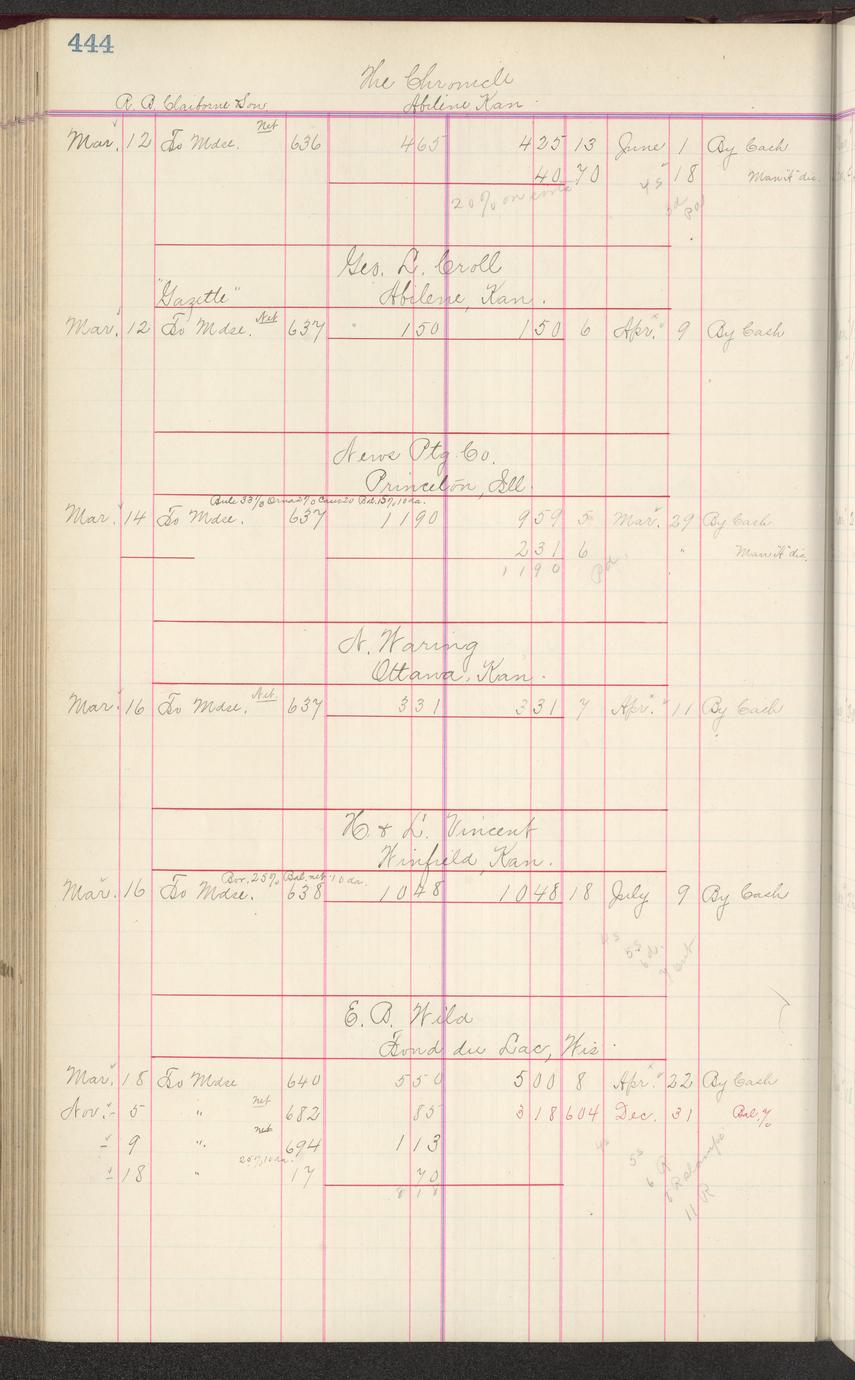 444
The Chronicle
R. B. Claiborne & Son Abilene Kan.
Net
Mar. 12 To Mdse. 636 465 425 13 June 1 By Cash
40 70 " 18 Man'f'r dis.
20% on 4s
Pd
Geo. L. Croll
"Gazette" Abilene, Kan.
Mar. 12 To Mdse. Net 637 150 150 6 Apr. 9 By Cash
News Ptg. Co.
Princeton, Ill.
Mar. 14 To Mdse. 637 1190 959 5 Mar. 29 By Cash
231 6 " Man'f'r dis.
1190 Pd.
N. Waring
Ottawa, Kan.
Mar. 16 To Mdse. Net 637 331 331 7 Apr. 11 By Cash
H. & L. Vincent
Winfield, Kan.
Bor. 25% Bal. net 10 da.
Mar. 16 To Mdse. 638 1048 1048 18 July 9 By Cash
4s
5s
6d.
7 Cut
E. B. Wild
Fond du Lac, Wis.
Mar. 18 To Mdse 640 550 500 8 Apr. 22 By Cash
Nov. 5 " net 682 85 318 604 Dec. 31 Bal. %
" 9 " net 694 113 4s
25% 10 da. 5s
" 18 " 17 70 6 R
818
11 R